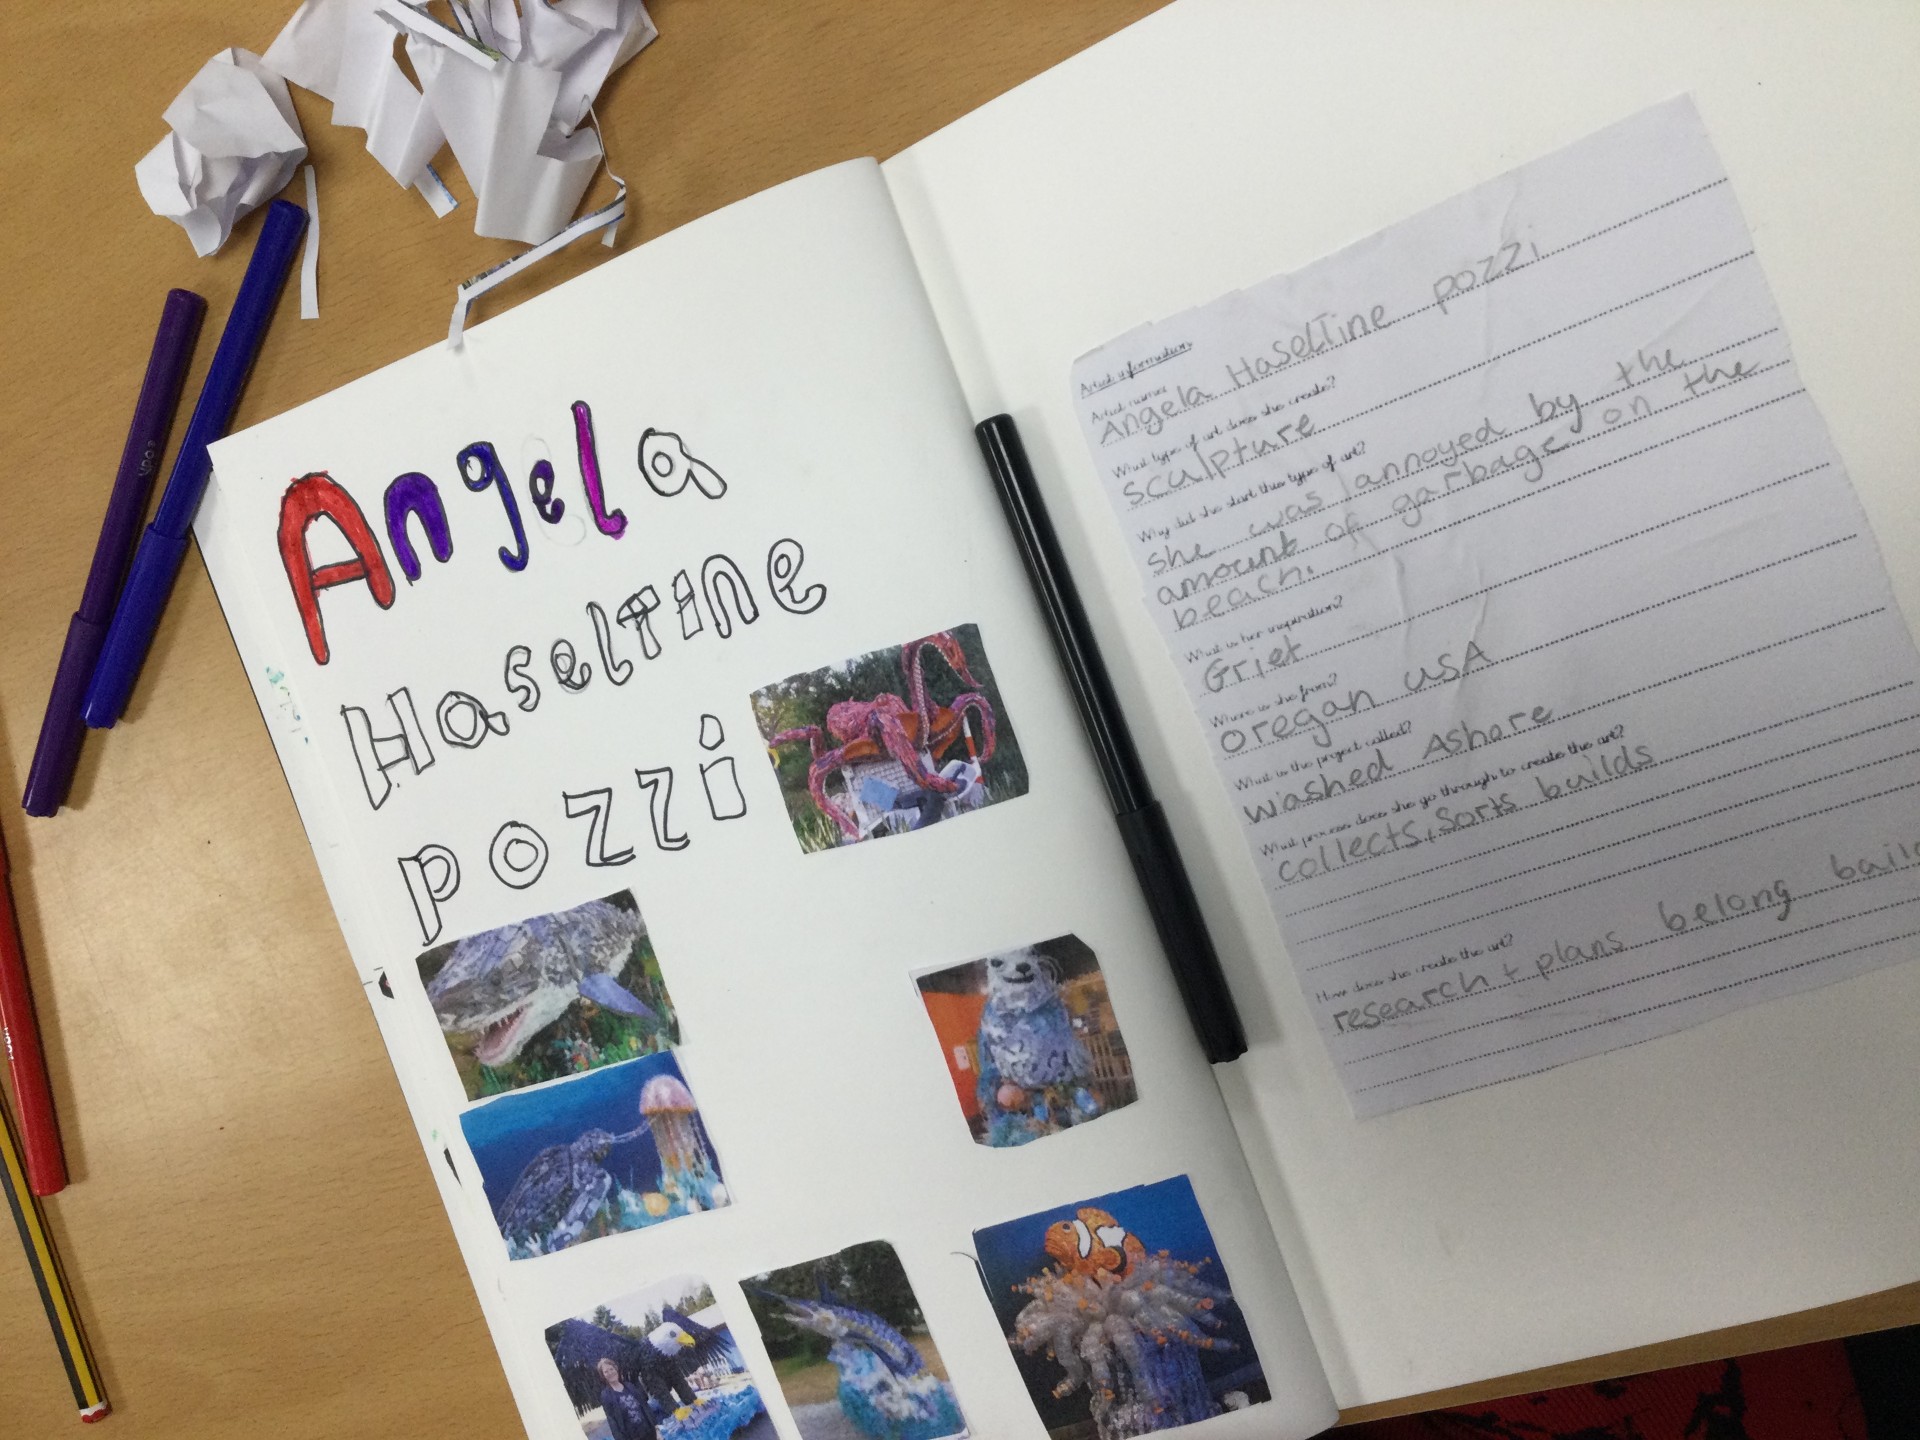 Angela
HaselTine
pozzi
Artist information
Artist name?
Angela HaselTine pozzi
What type of art does she create?
sculpture
Why did she start this type of art?
she was annoyed by the
amount of garbage on the
beach.
What is her inspiration?
Grief
Where is she from?
oregan USA
What is the project called?
washed Ashore
What process does she go through to create the art?
collects, sorts builds
How does she create the art?
research + plans belong